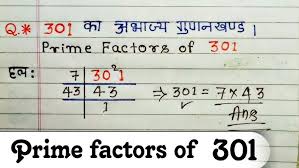 Q.* 301 का अभाज्य गुणनखण्ड ।
Prime Factors of 301
हल: 7 | 30²1
43 | 43 ⇒ 301 = 7 × 43
1 ✓ Ans
Prime factors of 301